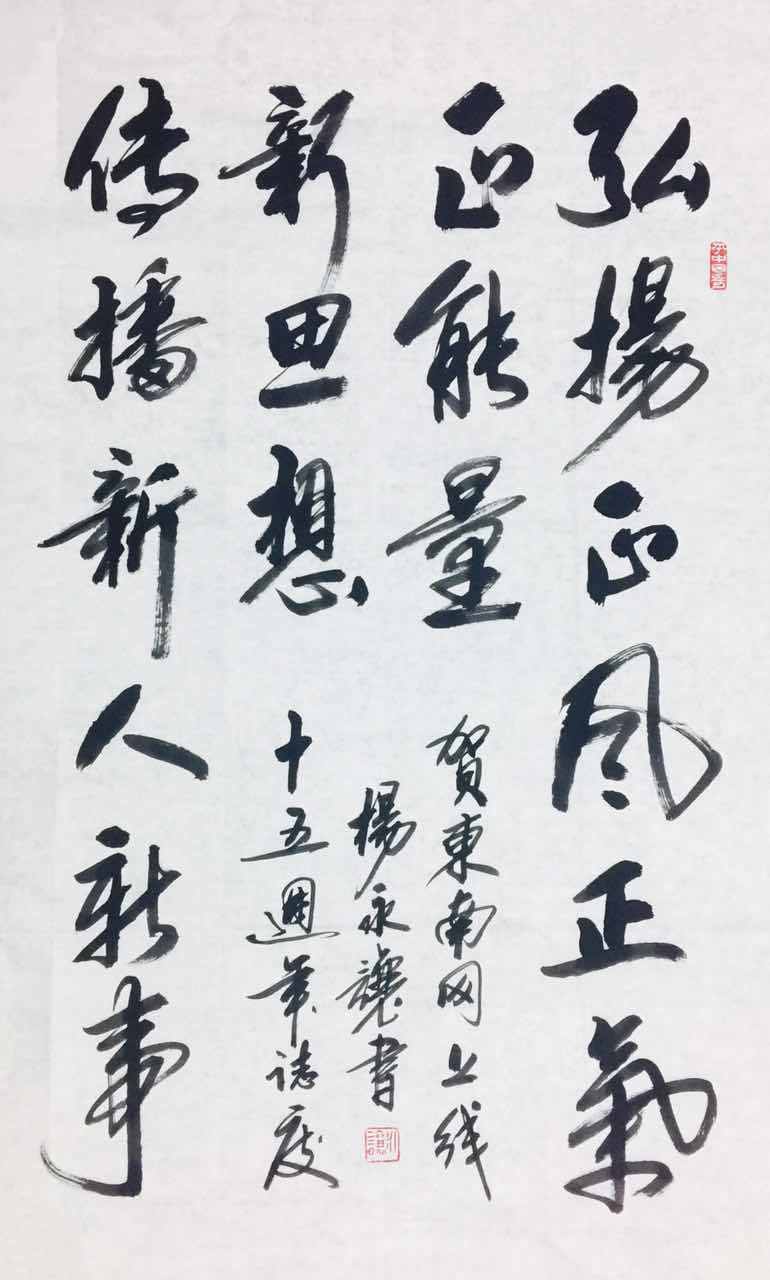 弘揚正风正氣
正能量
新思想
傳播新人新事
賀東南网上线
十五週年誌慶
楊永讓書